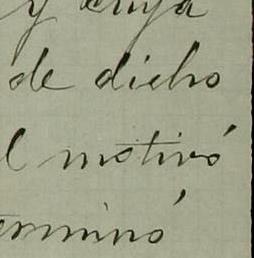 y cuya
de dicho
l motivó
erminó